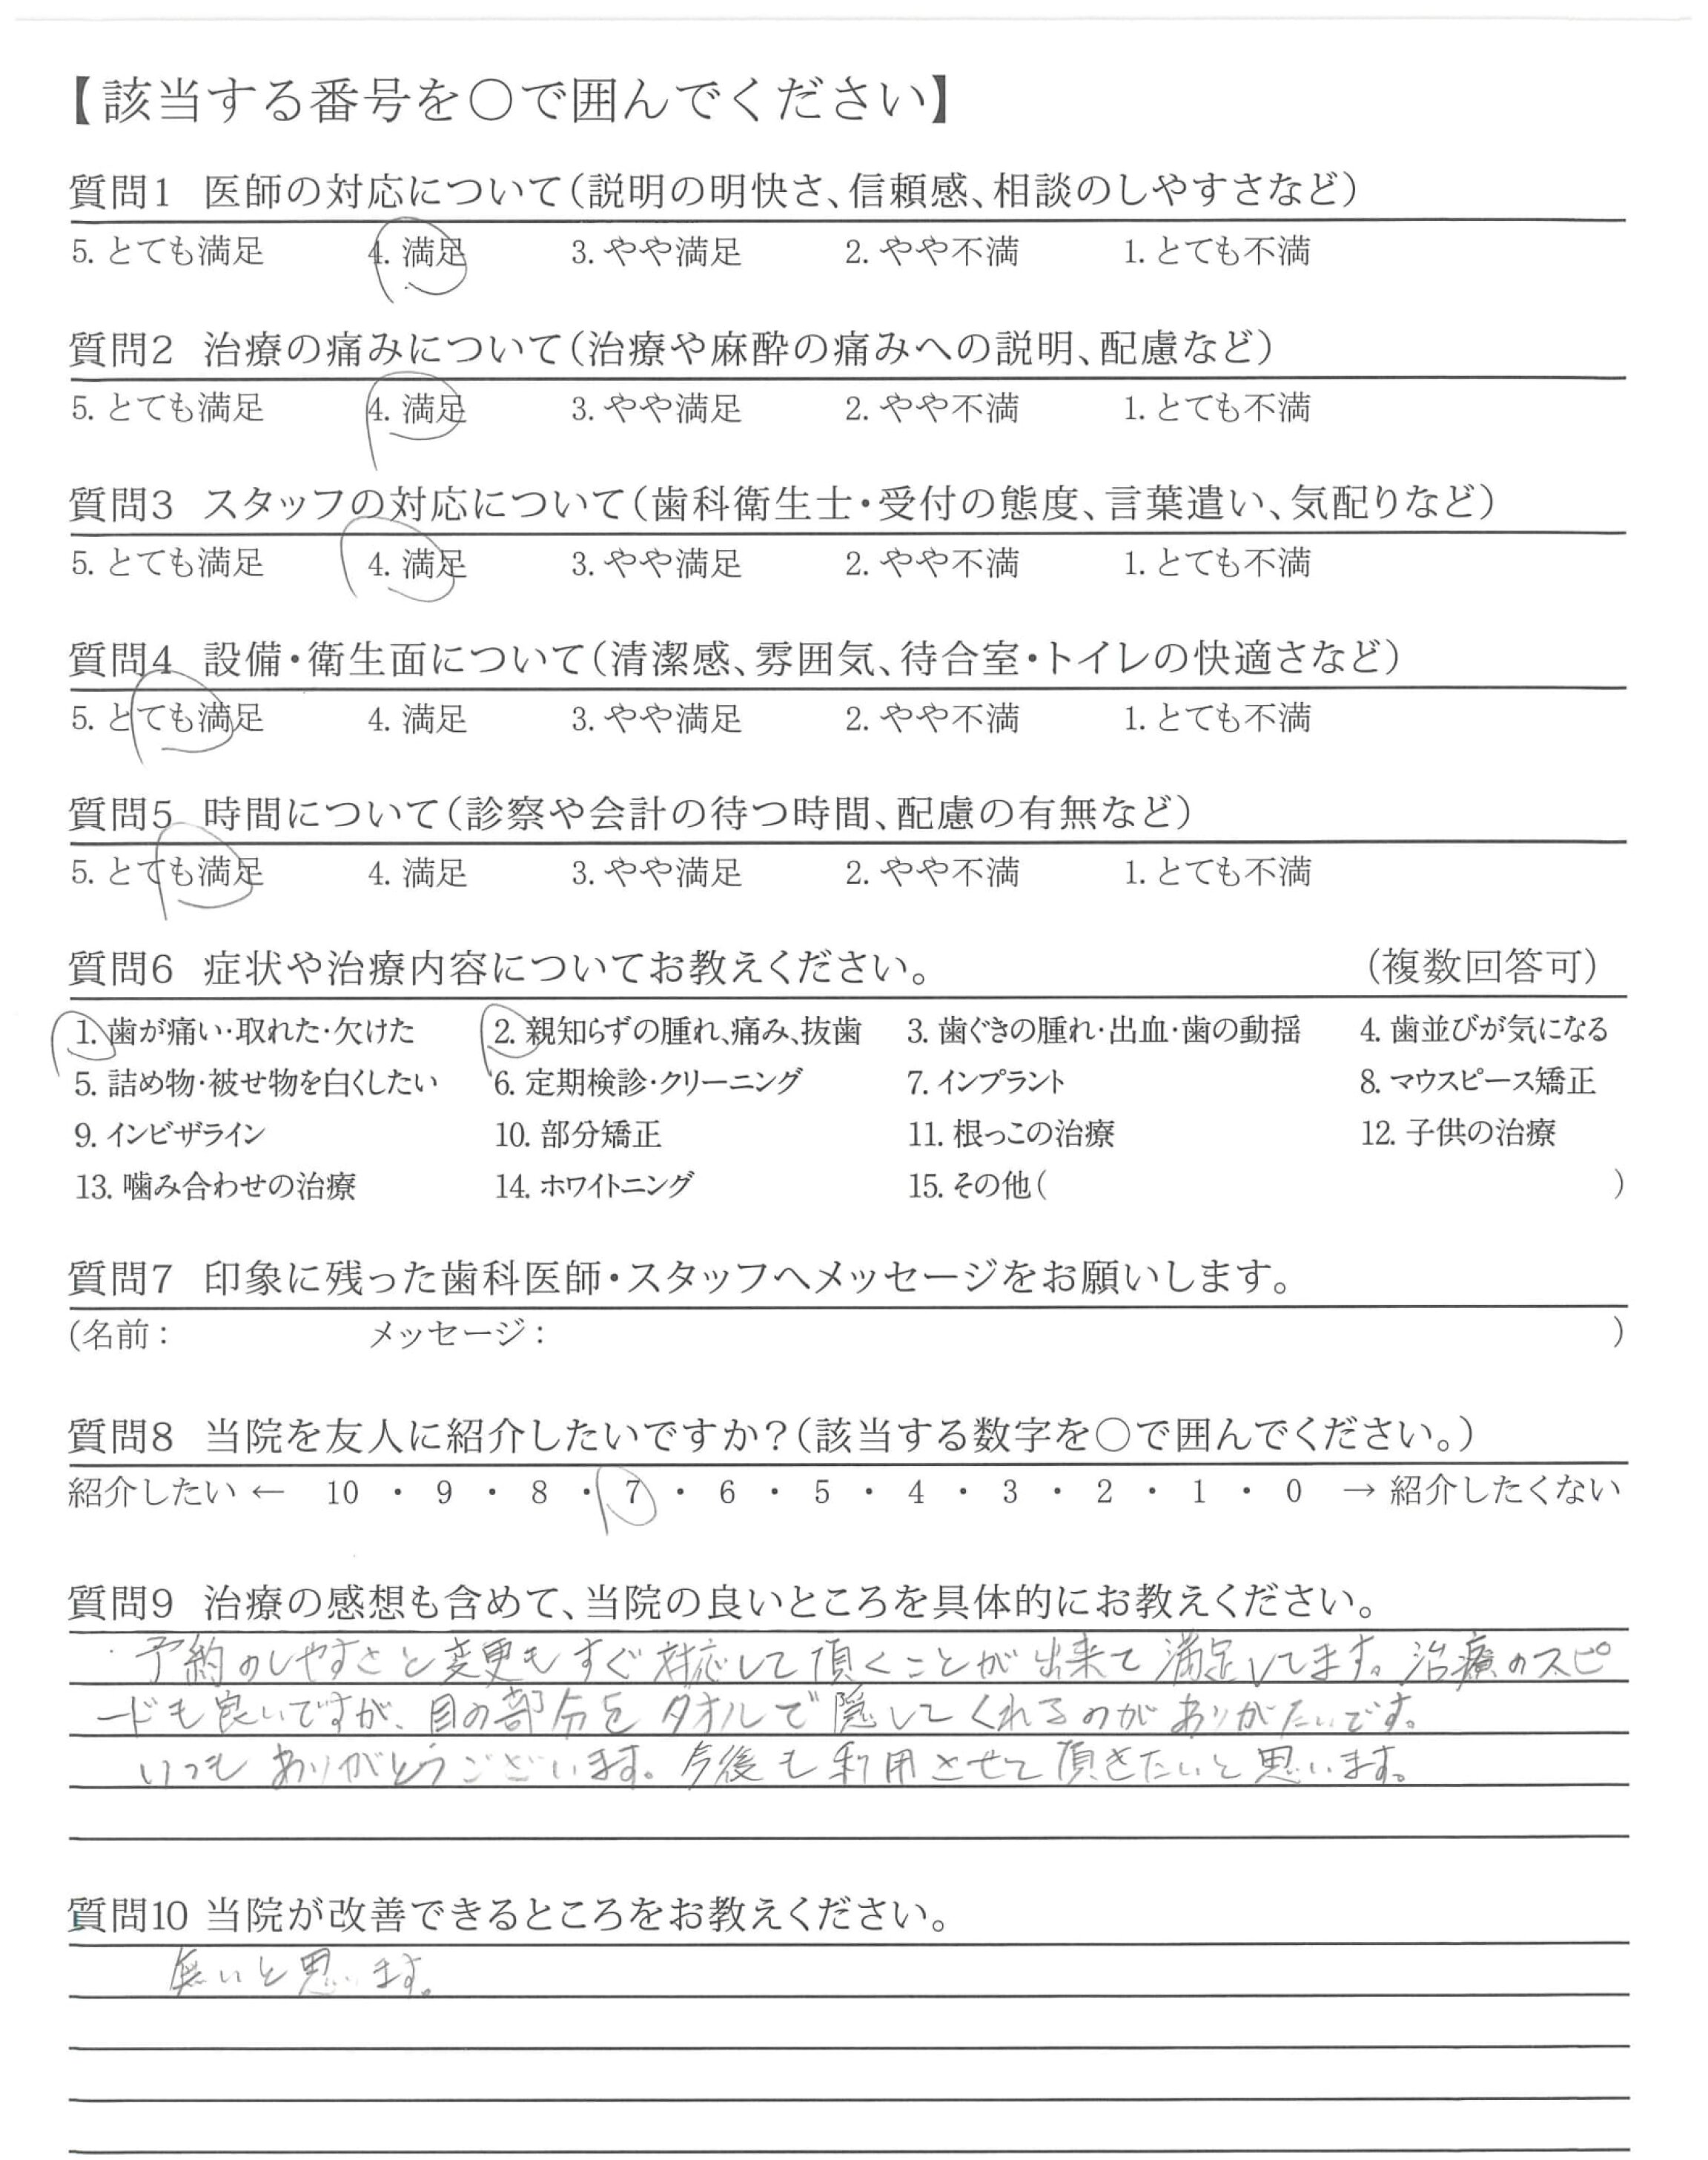 【該当する番号を〇で囲んでください】
質問1 医師の対応について(説明の明快さ、信頼感、相談のしやすさなど)
5. とても満足 4. 満足 3. やや満足 2. やや不満 1. とても不満
質問2 治療の痛みについて(治療や麻酔の痛みへの説明、配慮など)
5. とても満足 4. 満足 3. やや満足 2. やや不満 1. とても不満
質問3 スタッフの対応について(歯科衛生士・受付の態度、言葉遣い、気配りなど)
5. とても満足 4. 満足 3. やや満足 2. やや不満 1. とても不満
質問4 設備・衛生面について(清潔感、雰囲気、待合室・トイレの快適さなど)
5. とても満足 4. 満足 3. やや満足 2. やや不満 1. とても不満
質問5 時間について(診察や会計の待つ時間、配慮の有無など)
5. とても満足 4. 満足 3. やや満足 2. やや不満 1. とても不満
質問6 症状や治療内容についてお教えください。 (複数回答可)
1. 歯が痛い・取れた・欠けた 2. 親知らずの腫れ、痛み、抜歯 3. 歯ぐきの腫れ・出血・歯の動揺 4. 歯並びが気になる
5. 詰め物・被せ物を白くしたい 6. 定期検診・クリーニング 7. インプラント 8. マウスピース矯正
9. インビザライン 10. 部分矯正 11. 根っこの治療 12. 子供の治療
13. 噛み合わせの治療 14. ホワイトニング 15. その他( )
質問7 印象に残った歯科医師・スタッフへメッセージをお願いします。
(名前: メッセージ: )
質問8 当院を友人に紹介したいですか?(該当する数字を〇で囲んでください。)
紹介したい ← 10 ・ 9 ・ 8 ・ 7 ・ 6 ・ 5 ・ 4 ・ 3 ・ 2 ・ 1 ・ 0 → 紹介したくない
質問9 治療の感想も含めて、当院の良いところを具体的にお教えください。
予約のしやすさと変更もすぐ対応して頂くことが出来て満足してます。治療のスピ
ードも良いですが、目の部分をタオルで隠してくれるのがありがたいです。
いつもありがとうございます。今後も利用させて頂きたいと思います。
質問10 当院が改善できるところをお教えください。
無いと思います。